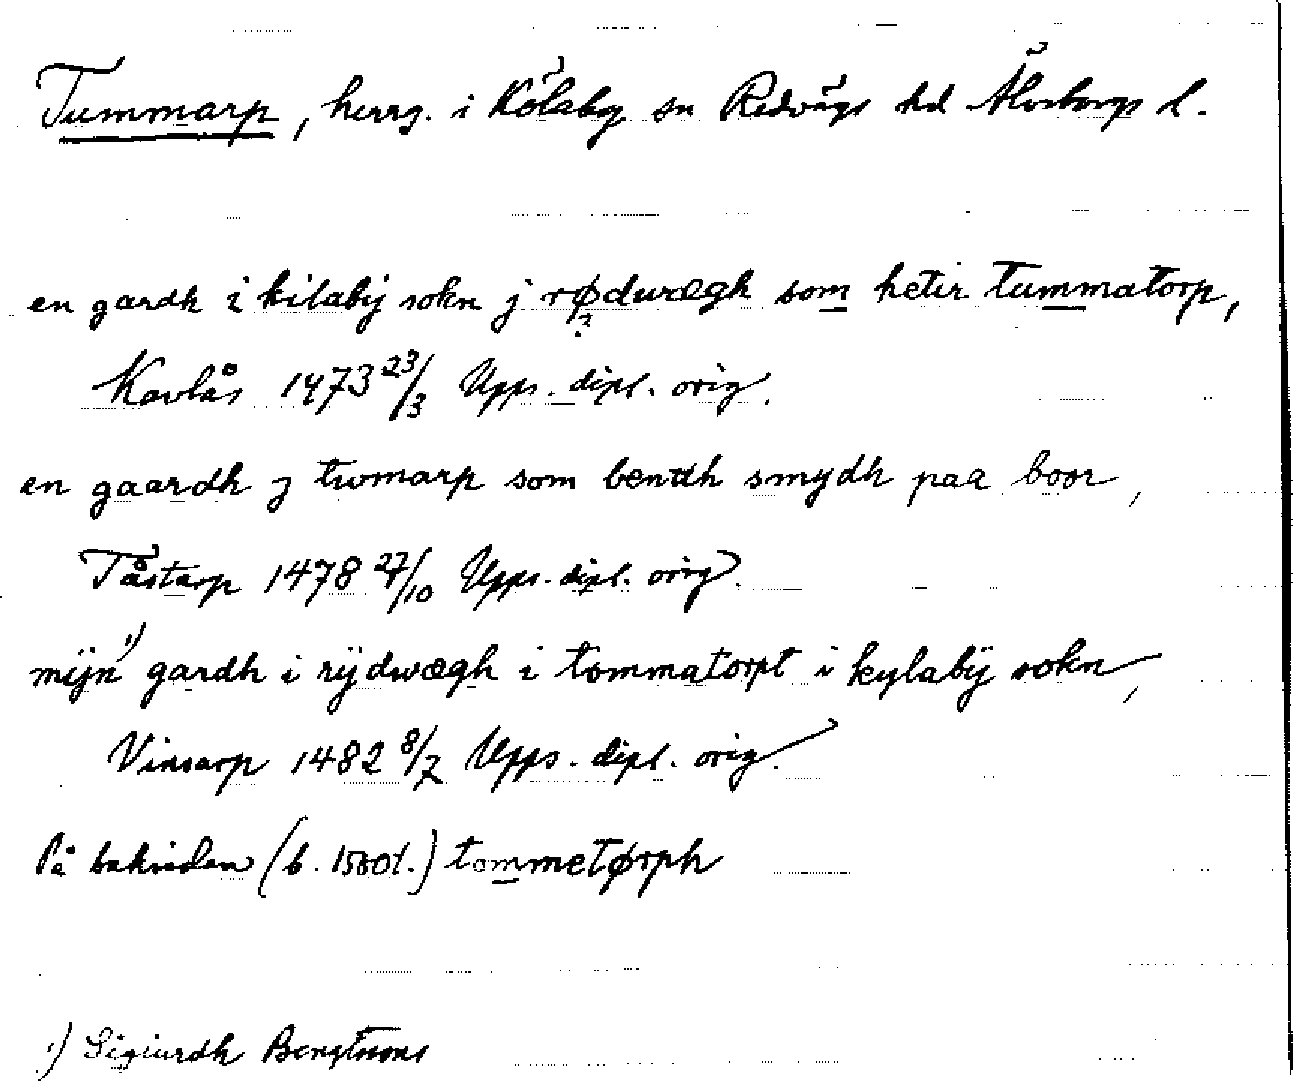 Tummarp, herrg. i Kölaby sn Redvägs hd Älvsborgs l.
en gardh i kilabij sokn j rødwægh som hetir tummatorp,
?
Kavlås 1473 23/3 Upps. dipl. orig.
en gaardh j twmarp som bentdh smydh paa boor,
Tåstarp 1478 27/10 Upps. dipl. orig.
mijn 1) gardh i rijdwægh i tommatorpt i kylabij sokn,
Vinsarp 1482 8/7 Upps. dipl. orig.
På baksidan (b. 1500t.) tommetørph
1) Sigiurdh Bengtsons